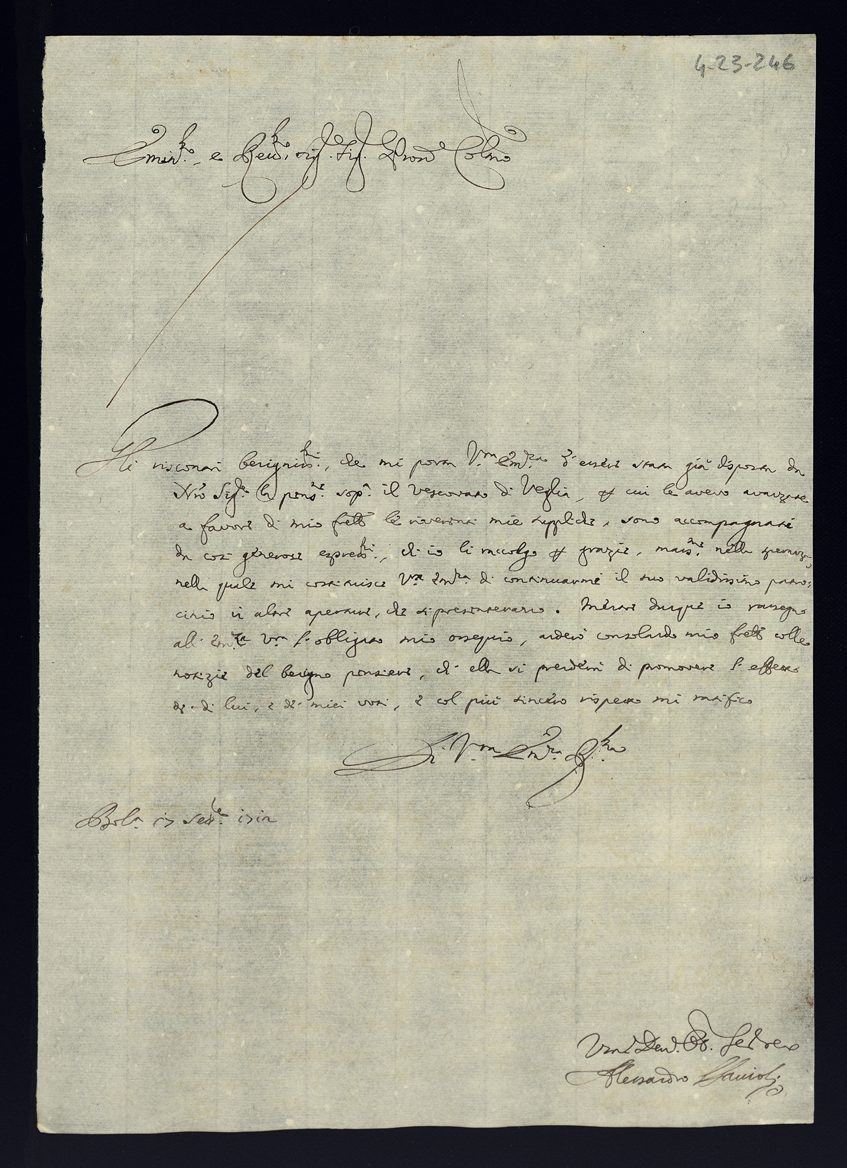 4-23-246
Emin.mo e Rev.mo Sig. Sig. Pron. Colmo
Gli riscontri benignis.mi, che mi porta V.ra Em.za d'essere stata già disposta da
N.ro Sig.re la pens.ne sop.a il Vescovato di Veglia, p cui le avevo avanzate
a favore di mio fratello le riverenti mie suppliche, sono accompagnati
da così generose espress.ni, ch'io li raccolgo p grazie, mass.e nella speranza,
nella quale mi costituisce V.ra Em.za di continuarmi il suo validissimo patro:
cinio in altre aperture, che si presentervanno. Mentre dunque io rassegno
all'Em.za V.ra l'obbligato mio ossequio, anderò consolando mio fratello colle
notizie del benigno pensiere, ch'ella si prenderà di promovere l'effetto
de' di lui, e de' miei voti, e col più sincero rispetto mi ratifico
Di V.ra Em.za R.ma
Bol.a Set.e
Um.o Dev. Ob. Ser.re
Alessandro